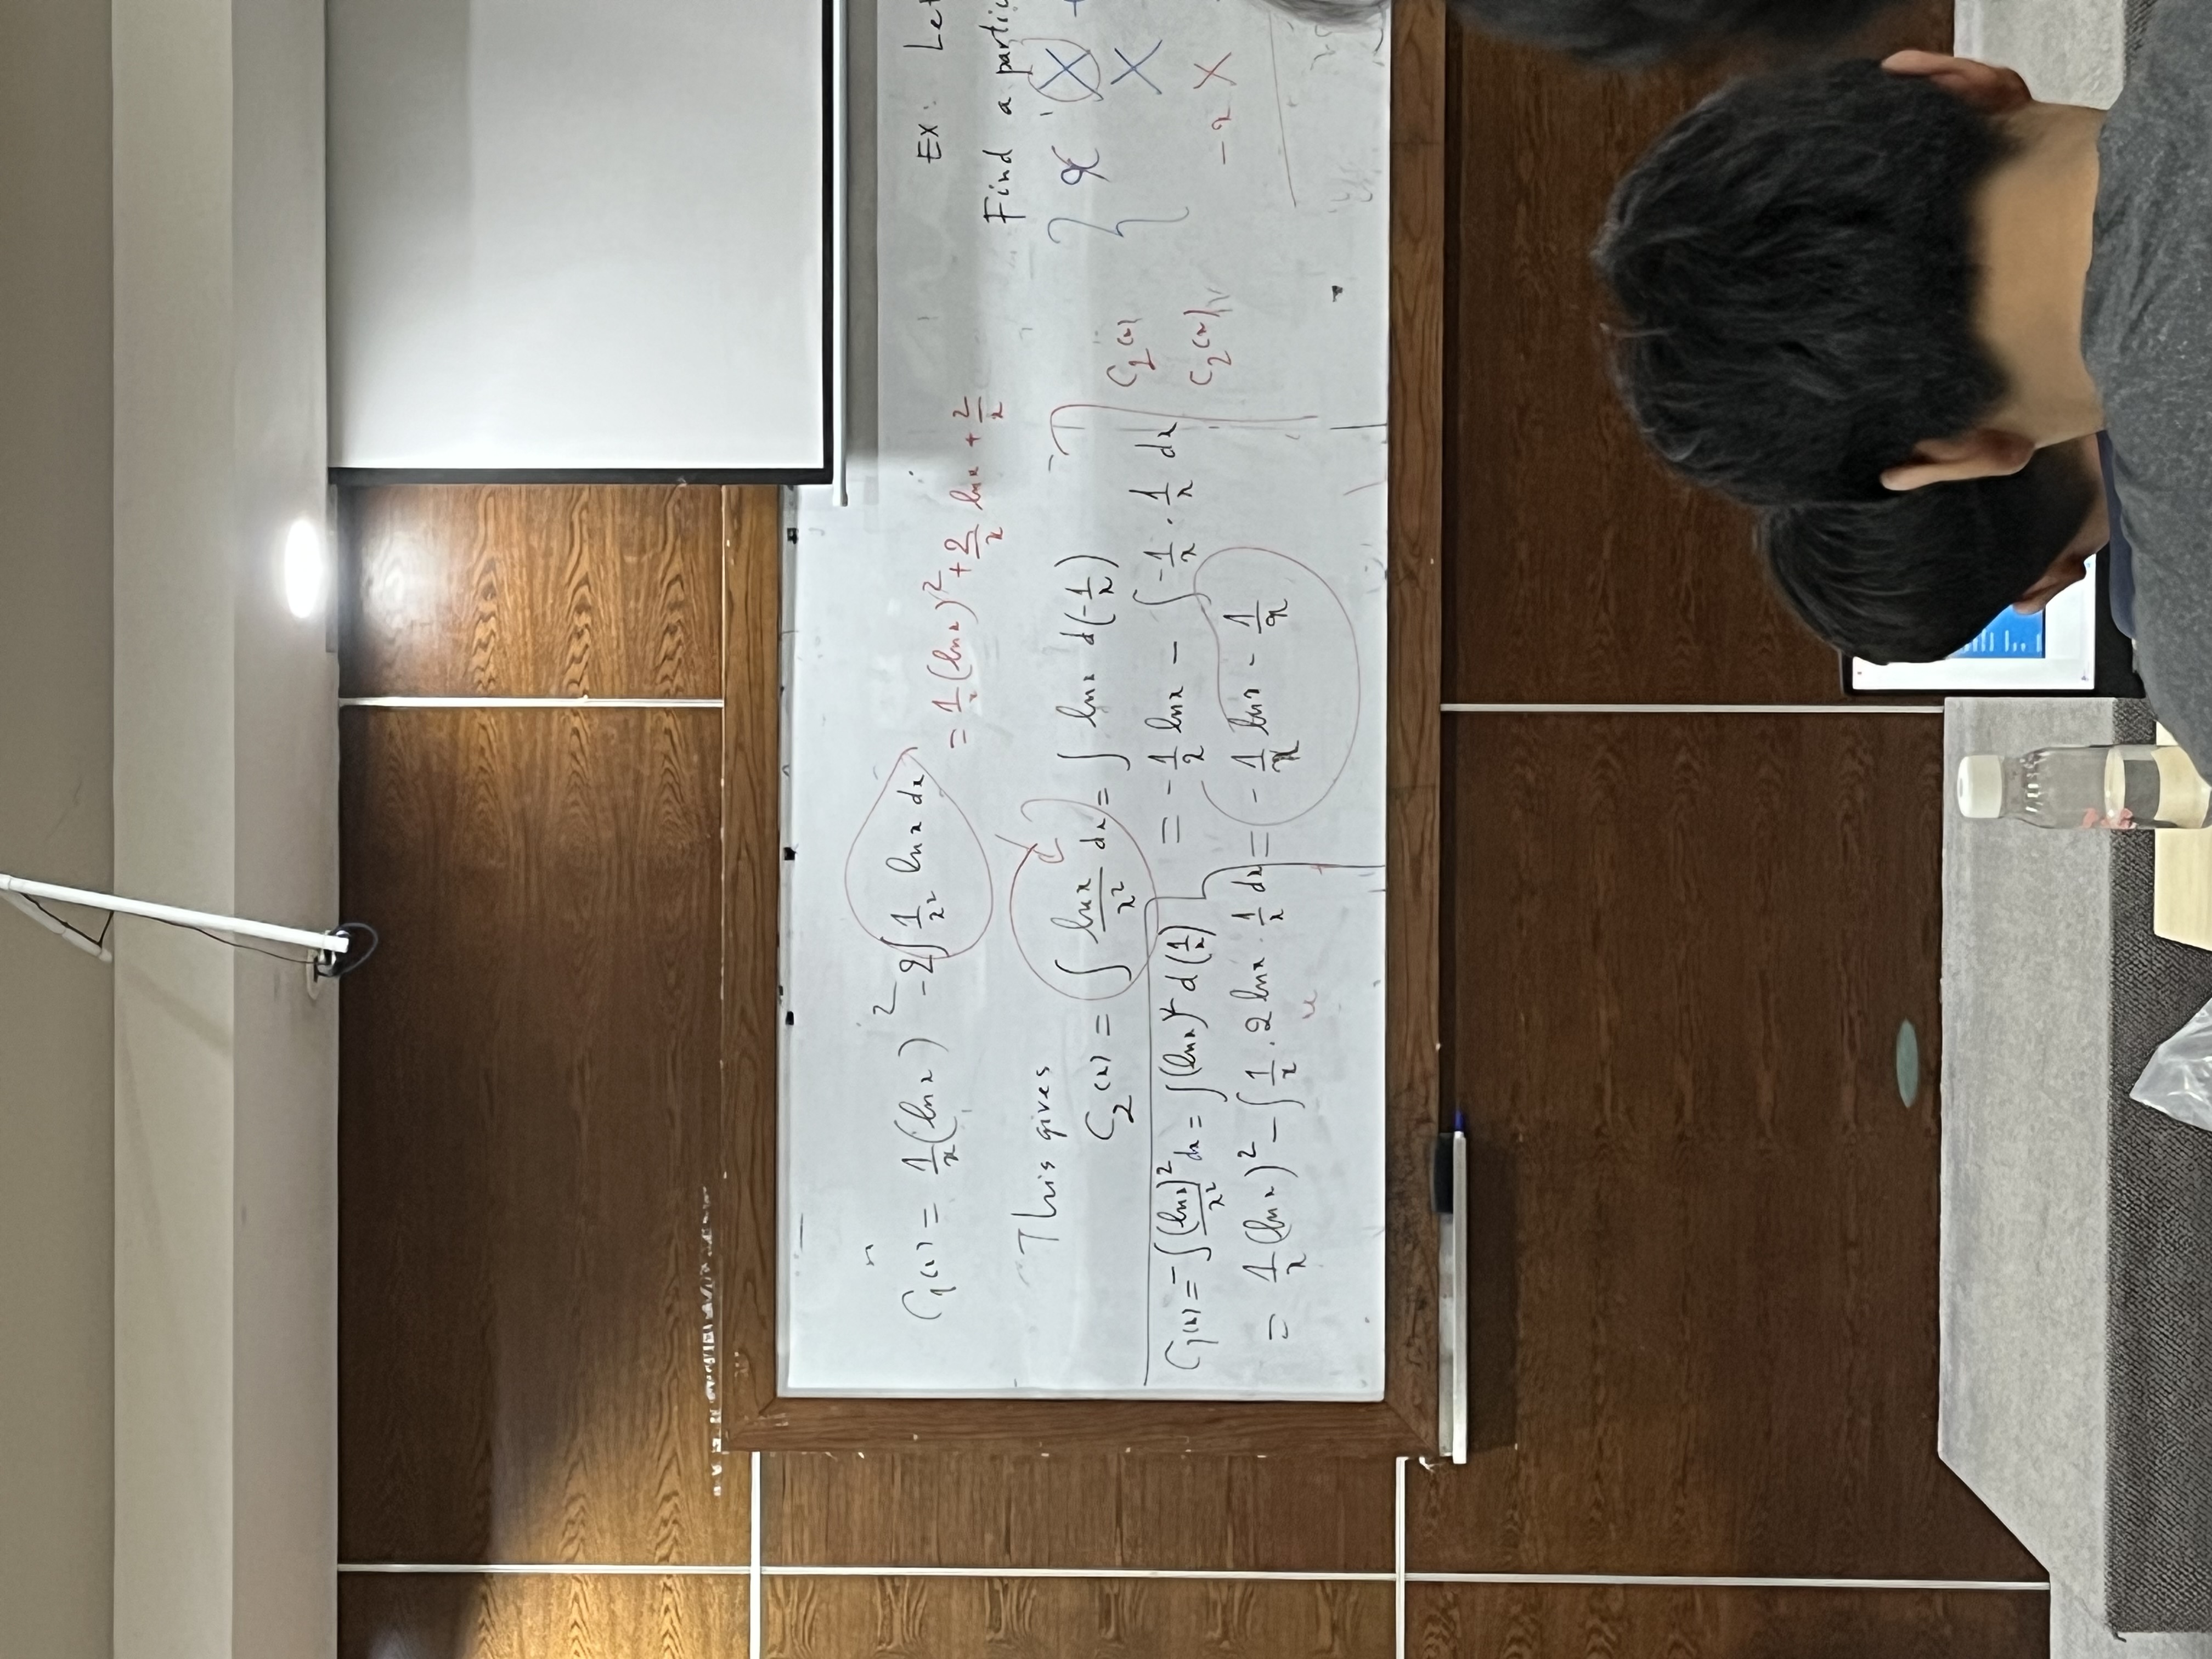 C₁(x) = 1/x (ln x)² - 2∫ 1/x² ln x dx
= 1/x (ln x)² + 2/x ln x + 2/x
This gives
C₂(x) = ∫ ln x / x² dx = ∫ ln x d(-1/x)
= -1/x ln x - ∫ -1/x · 1/x dx
= -1/x ln x - 1/x
C₁(x) = -∫ (ln x)² / x² dx = ∫ (ln x)² d(1/x)
= 1/x (ln x)² - ∫ 1/x · 2 ln x · 1/x dx
C₁(x)
C₂(x)
EX: Let
Find a partic
x X +
X
-x X